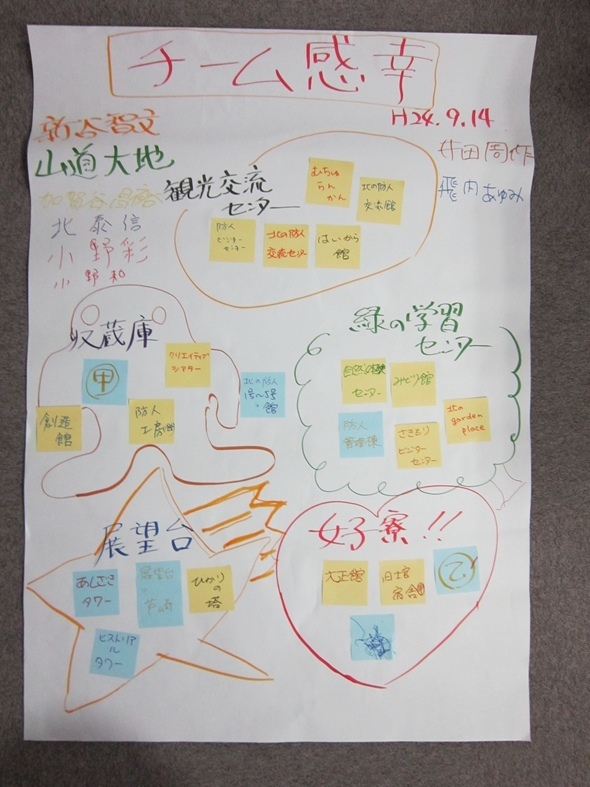 チーム感幸
H24.9.14
山道大地
北泰信
小野彩
小野和
飛内あゆみ
観光交流
センター
むちゅ
らん
かん
北の防人
交流館
防人
ビジター
センター
北の防人
交流センター
はいから
館
収蔵庫
甲
クリエイティブ
シアター
北の防人
1号〜5号
館
創造
館
防人
工房
緑の学習
センター
自然体験
センター
みどり館
防人
管理棟
さきもり
ビジター
センター
北の
garden
place
展望台
あしざき
タワー
展望台
芦崎
ひかり
の塔
ヒストリアル
タワー
女子寮!!
大正館
旧士官
宿舎
乙